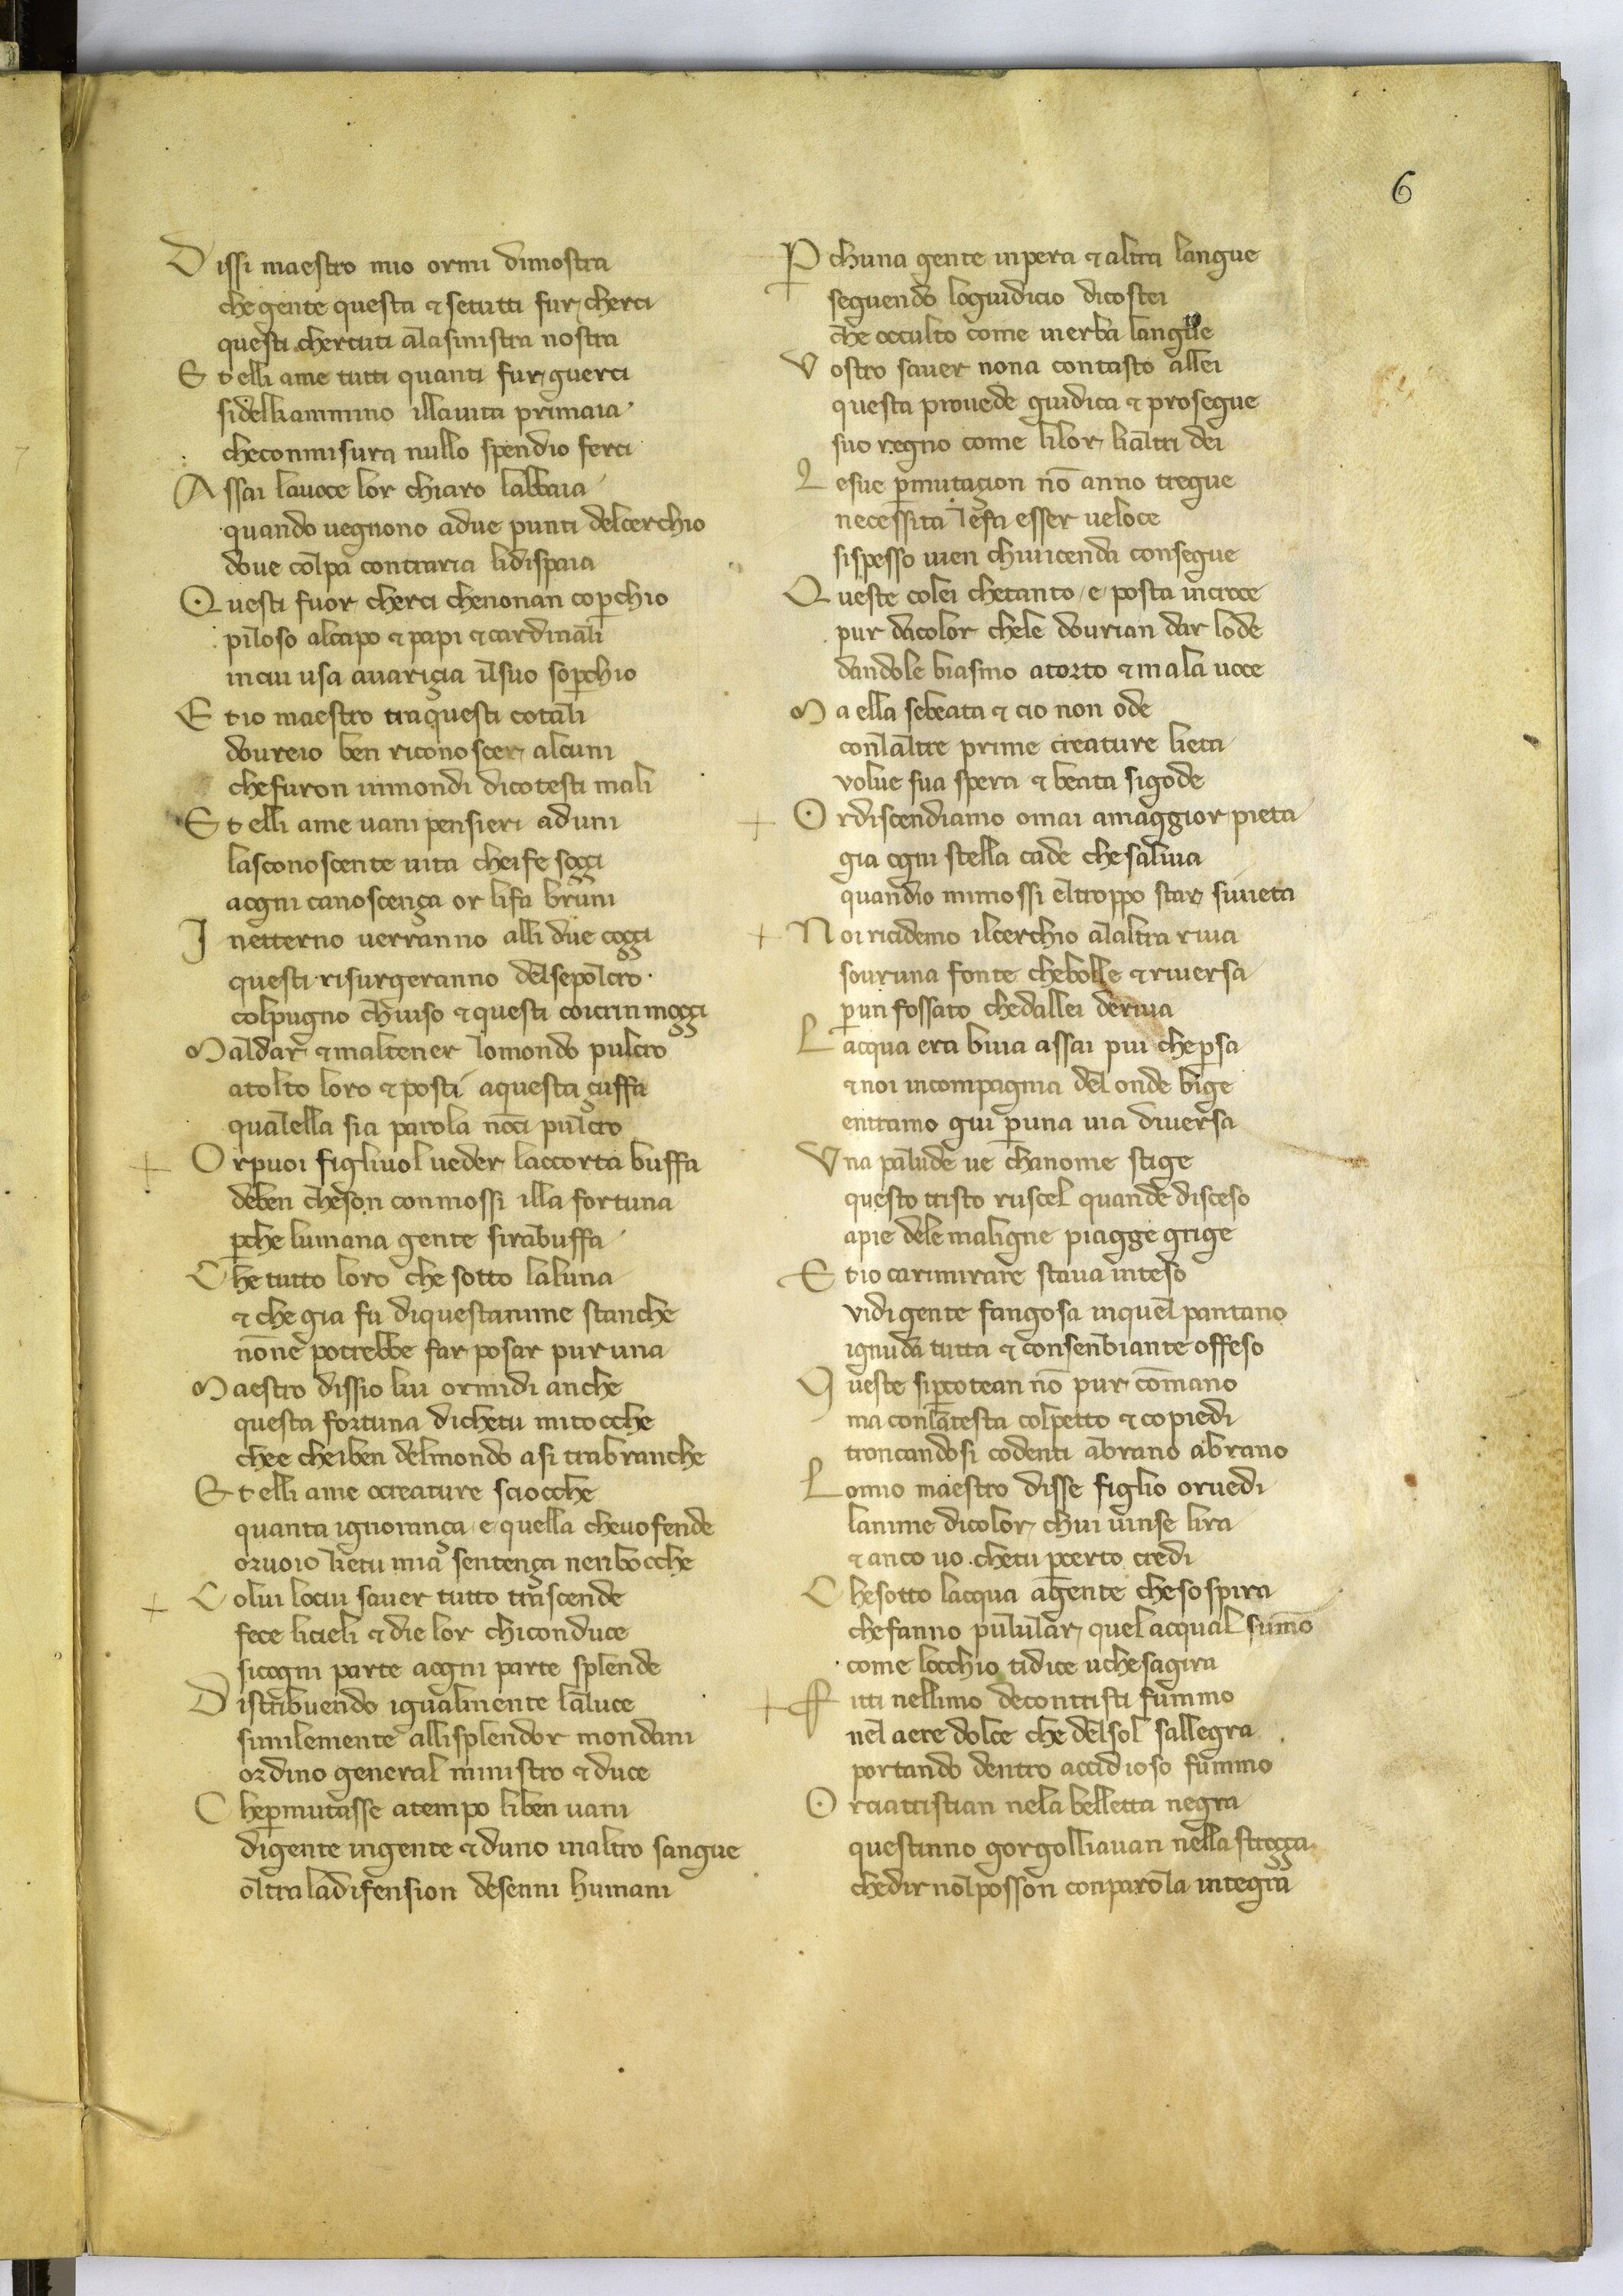 6
Dissi maestro mio ormi dimostra
che gente questa & setutti fur cherci
questi chercuti alasinistra nostra
Et elli ame tutti quanti fur guerci
sidellamente illauita primaia
checonmisura nullo spendio ferci
Assai lauoce lor chiaro labbaia
quando uegnono adue punti delcerchio
doue colpa contraria lidispaia
Questi fuor cherci chenonan coperchio
piloso alcapo & papi & cardinali
incui usa auariçia ilsuo soperchio
Et io maestro traquesti cotali
doureio ben riconoscer alcuni
chefuron inmondi dicotesti mali
Et elli ame uani pensieri aduni
lasconoscente uita cheife soççi
aogni canoscença or lifa bruni
Inetterno uerranno alli due coççi
questi risurgeranno delsepolcro
colpugno chiuso & questi coicrin moççi
Maldar & maltener lomondo pulcro
atolto loro & posti aquesta çuffa
qualella sia parola noci pulcro
Or puoi figliuol ueder laccorta buffa
deben cheson conmossi illa fortuna
perche lumana gente sirabuffa
Che tutto loro che sotto laluna
& che gia fu diquestanime stanche
none potrebbe far posar pur una
Maestro dissio lui ormidi anche
questa fortuna dichetu mitocche
chee cheiben delmondo asi trabranche
Et elli ame ocreature sciocche
quanta ignorança e quella cheuofende
oruoio chetu mia sentença neribocche
Colui locui sauer tutto trascende
fece licieli & die lor chiconduce
sicogni parte aogni parte splende
Distribuendo igualmente laluce
similemente allisplendor mondani
ordino general ministro & duce
Chepermutasse atempo liben uani
digente ingente & duno inaltro sangue
oltraladifension desenni humani
Pchuna gente inpera & altra langue
seguendo loguidicio dicostei
che occulto come inerba langue
Vostro sauer nona contasto allei
questa prouede guidica & prosegue
suo regno come lilor lialtri dei
Lesue permutaçion no anno tregue
necessita lefa esser ueloce
sispesso uien chiuicenda consegue
Queste colei chetanto e posta incroce
pur dacolor chele dourian dar lode
dandole biasmo atorto & mala uoce
Ma ella sebeata & cio non ode
conlaltre prime creature lieta
volue sua spera & beata sigode
Ordiscendiamo omai amaggior pieta
gia ogni stella cade chesaliua
quandio mimossi eltroppo star siuieta
Noi ricidemo ilcerchio alaltra riua
souruna fonte chebolle & riuersa
perun fossato chedallei deriua
Lacqua era buia assai piu chepersa
& noi incompagnia del onde bige
entramo giu peruna uia diuersa
Vna palude ue chanome stige
questo tristo ruscel quande disceso
apie dele maligne piagge grige
Et io carimirare staua inteso
vidi gente fangosa inquel pantano
ignuda tutta & consenbiante offeso
Queste sipercotean no pur comano
ma conlatesta colpetto & copiedi
troncandosi codenti abrano abrano
Lomio maestro disse figlio oruedi
lanime dicolor chui uinse lira
& anco uo chetu percerto credi
Chesotto lacqua agente chesospira
chefanno pulular quel acqual sumo
come locchio tidice uchesagira
Fitti nellimo decontristi fummo
nel aere dolce che delsol sallegra
portando dentro accidioso fummo
Orciattristian nela belletta negra
questinno gorgolliauan nella stroçça
chedir nolposson conparola integra